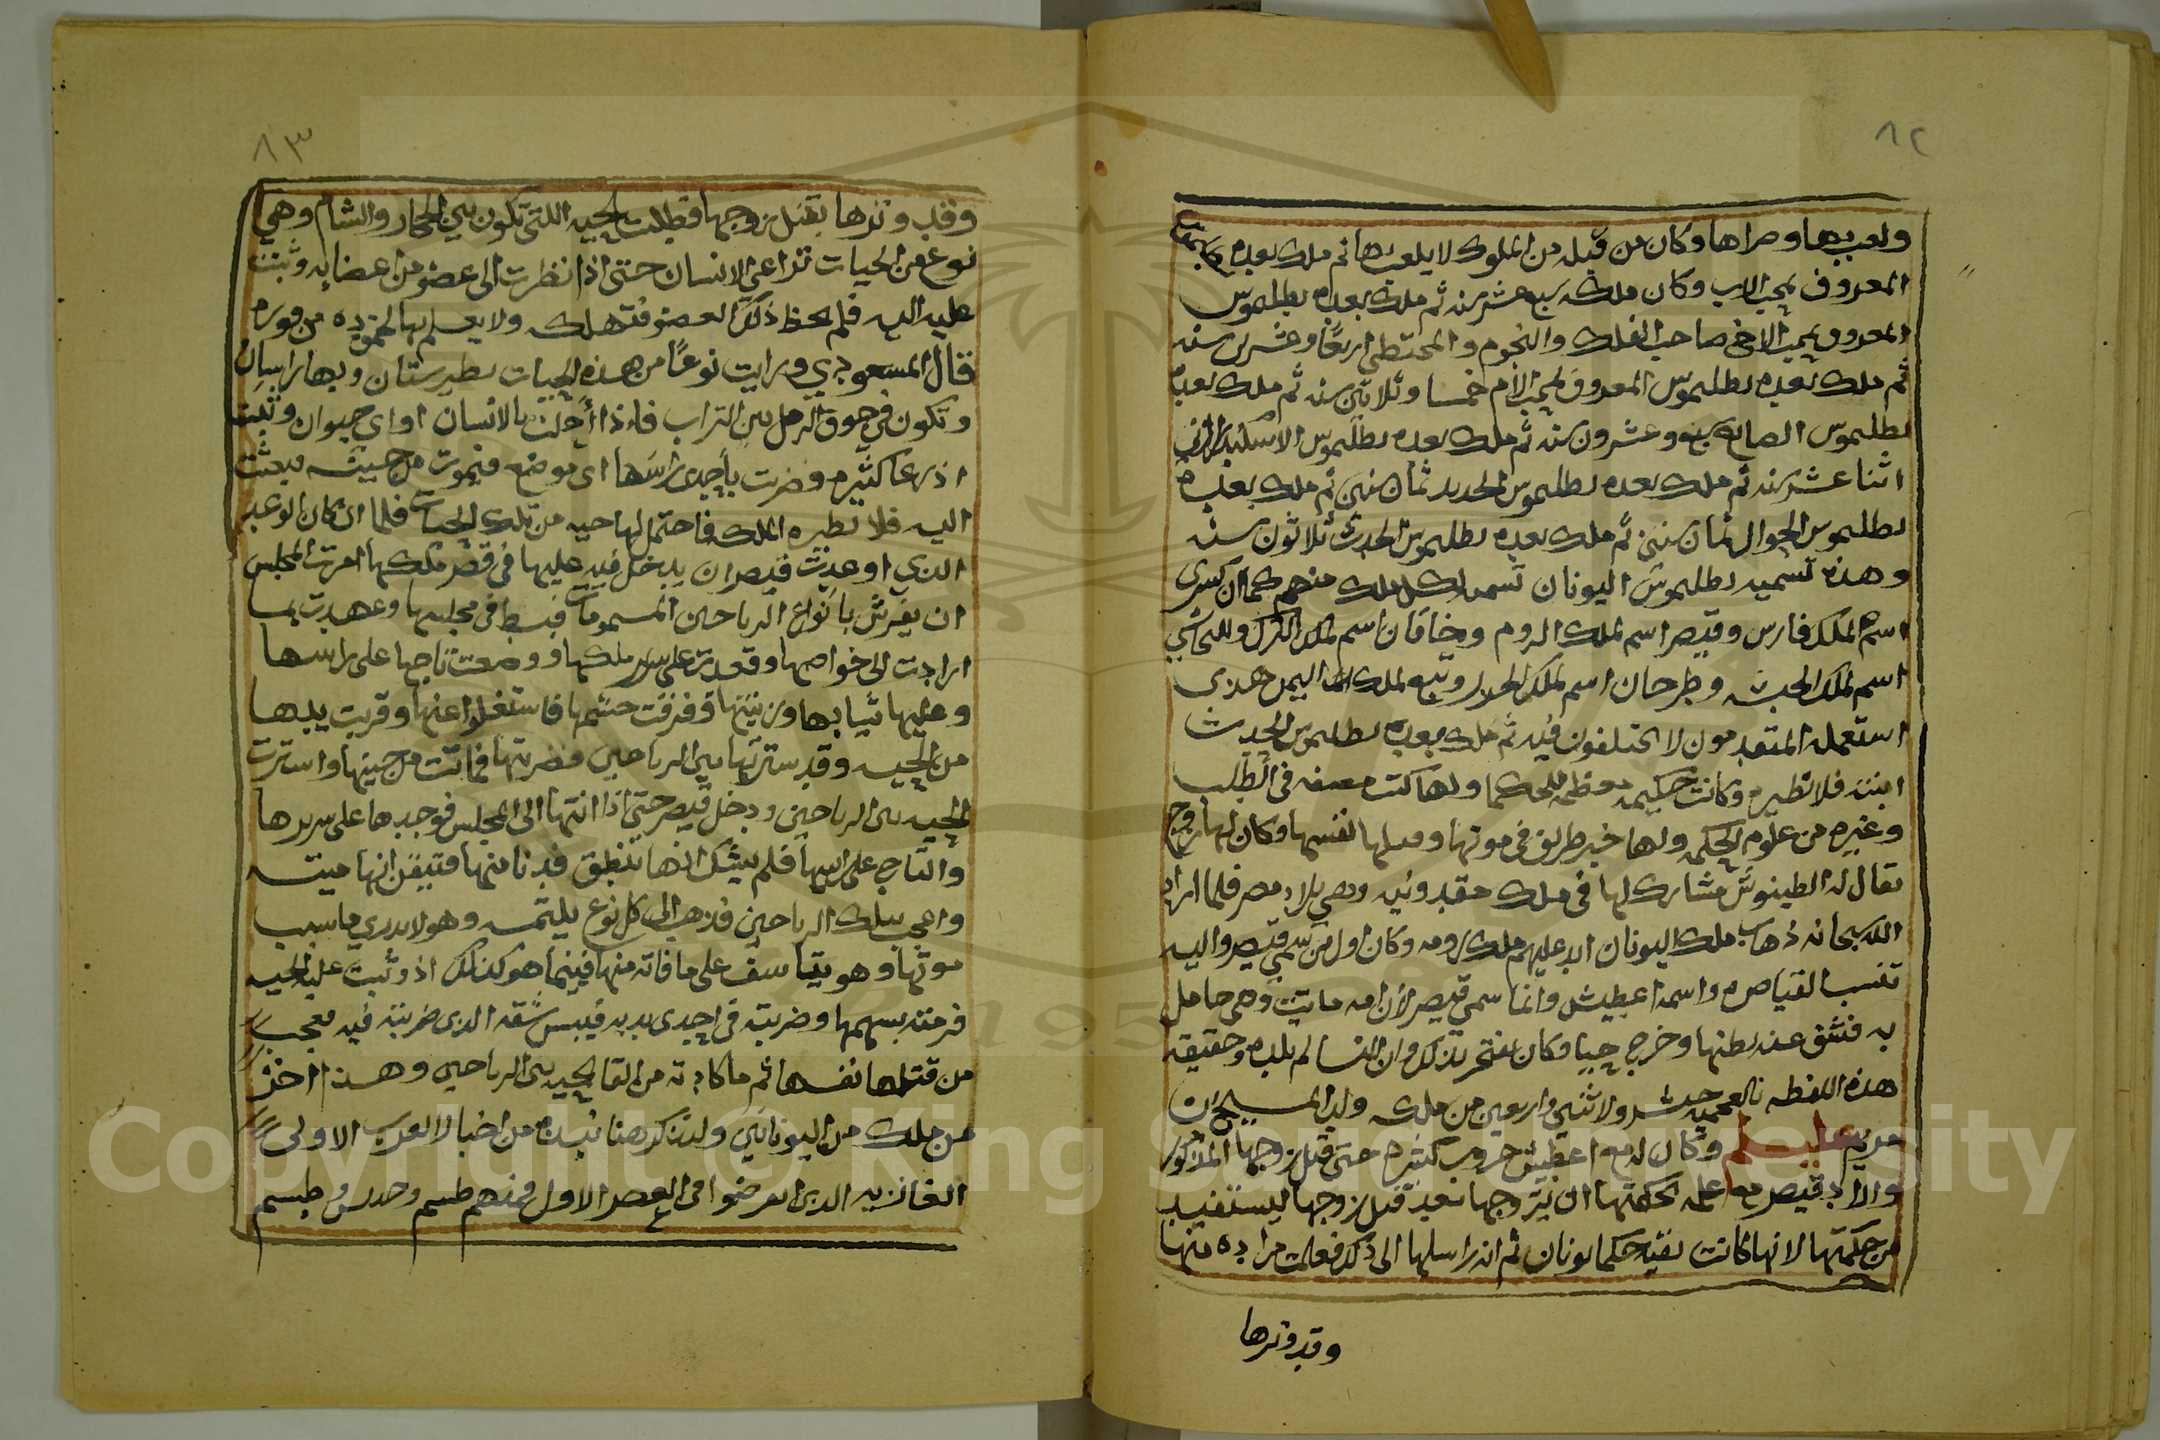 ٨٢
ولعب بها وضراها وكان من قبله من الملوك لا يلعب بها ثم ملك بعده
المعروف بمحب الاب وكان ملكه سبع عشر سنه ثم ملك بعده بطليموس
المعروف بمحب الاخ صاحب الفلك والنجوم والمجسطي اربعًا وعشرين سنه
ثم ملك بعده بطليموس المعروف بمحب الأم خمسا وثلاثين سنه ثم ملك بعده
بطليموس الصايغ سبع وعشرون سنه ثم ملك بعده بطليموس الاسكندراني
اثنا عشر سنه ثم ملك بعده بطليموس الحديد ثمان سنين ثم ملك بعده
بطليموس الجوال ثمان سنين ثم ملك بعده بطليموس الحدث ثلاثون سنه
وهذه تسميه بطليموس اليونان تسمى لكل ملك منهم كما ان كسرى
اسم لملك فارس وقيصر اسم لملك الروم وخاقان اسم لملك الترك والنجاشي
اسم لملك الحبشه وطرخان اسم لملك الخزر وتبع لملك اليمن هذى
استعمله المتقدمون لا يختلفون فيه ثم ملك بعده بطليموس الحديث
ابنته فلا نطيره وكانت حكيمه معظمه للحكما ولها كتب مصنفه في الطب
وغيره من علوم الحكمه ولها خبر طريف في موتها وقتلها لنفسها وكان لها زوج
يقال له انطينوس مشارك لها في ملك مقدونيه وهي بلاد مصر فلما اراد
الله سبحانه ذهاب ملك اليونان الا عليهم ملك رومه وكان اول من سمي قيصر واليه
تنسب القياصره واسمه اغطيش وانما سمي قيصر لأن امه ماتت وهي حامل
به فشق عنه بطنها وخرج حيا وكان يفتخر بذلك وان النسا لم يلده وحقيقه
هذه اللفظه بالعجميه جشر ولاثنى واربعين من ملكه ولد المسيح ابن
مريم عليه السلام وكان له مع اغطيش حروب كثيره حتى قتل زوجها المذكور
واراد قيصر مع علمه بحكمتها ان يتزوجها بعد قتل زوجها ليستفيد
من حكمتها لانها كانت بقيه حكما يونان ثم انه راسلها الى ذلك فعلمت مراده منها
وقد وترها
٨٣
وقد وترها بقتل زوجها فطلبت الحيه اللتي تكون بين الحجاز والشام وهي
نوع من الحيات تراعي الانسان حتى اذا نظرت الى عضو من اعضايه وثبت
عليه اليه فلم تخط ذلك العضو فتهلكه ولا يعلم بها لخموده من فوره
قال المسعودي ورايت نوعًا من هذه الحيات بطبرستان وبها راسان
وتكون في جوف الرمل بين التراب فاذا أحلت بالانسان او اي حيوان وثبت
اذرعا كثيره وضربت بأحدى راسها اى موضع فيموت من حينه فبعثت
اليه فلا نطيره الملكه فاحتمل لها حيه من تلك الحيات فلما ان كان الوعد
الذي اوعدت قيصر ان يدخل فيه عليها في قصر ملكها امرت المجلس
ان يفرش بانواع الرياحين المشمومات فبسط في مجلسها وعهدت بما
ارادت الى خواصها وقعدت على سرير ملكها ووضعت تاجها على راسها
وعليها ثيابها وزينتها وفرقت حشمها فاستغلوا عنها وقربت يدها
من الحيه وقد سترتها بين الرياحين فضربتها فماتت من حينها واسترت
الحيه بين الرياحين ودخل قيصر حتى اذا انتها الى المجلس فوجدها على سريرها
والتاج على راسها فلم يشك انها تنطق فدنا منها فتيقن انها ميته
واعجب بتلك الرياحين فذهب الى كل نوع يلتمسه وهو لا يدري ما سبب
موتها وهو يتاسف على ما فاته منها فبينما هو كذلك اذ وثبت عليه الحيه
فرمته بسهمها وضربته في احدى يديه فيبس شقه الذى ضربته فيه فعجب
من قتلها نفسها ثم ما كادته من القا الحيه بين الرياحين وهذا اخر
من ملك من اليونانين ولنذكر هنا نبذه من اخبار العرب الاولى
العاربه الذين انقرضوا في العصر الاول فمنهم طسم وجديس وطسم
Copyright © King Saud University